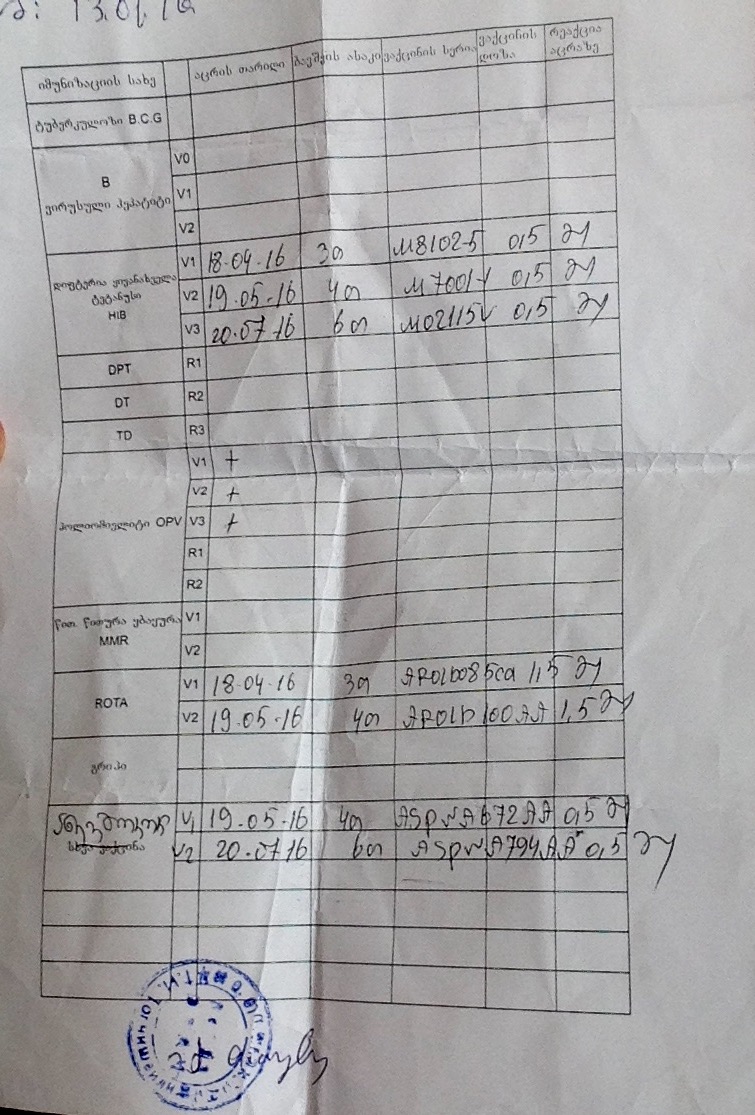 13.01.16
იმუნიზაციის სახე აცრის თარიღი ბავშვის ასაკი ვაქცინის სერია ვაქცინის დოზა რეაქცია აცრაზე
ტუბერკულოზი B.C.G
B ვირუსული ჰეპატიტი
V0
V1
V2
დიფტერია ყივანახველა ტეტანუსი HIB
V1 18.04.16 3თ M81025 0,5
V2 19.05.16 4თ 0,5
V3 20.07.16 6თ 0,5
DPT R1
DT R2
TD R3
პოლიომიელიტი OPV
V1 +
V2 +
V3 +
R1
R2
წით. წითურა ყბაყურა MMR
V1
V2
ROTA
V1 18.04.16 3თ 1,5
V2 19.05.16 4თ 1,5
გრიპი
V1 19.05.16 4თ 0,5
სხვა ვაქცინა
V2 20.07.16 6თ 0,5